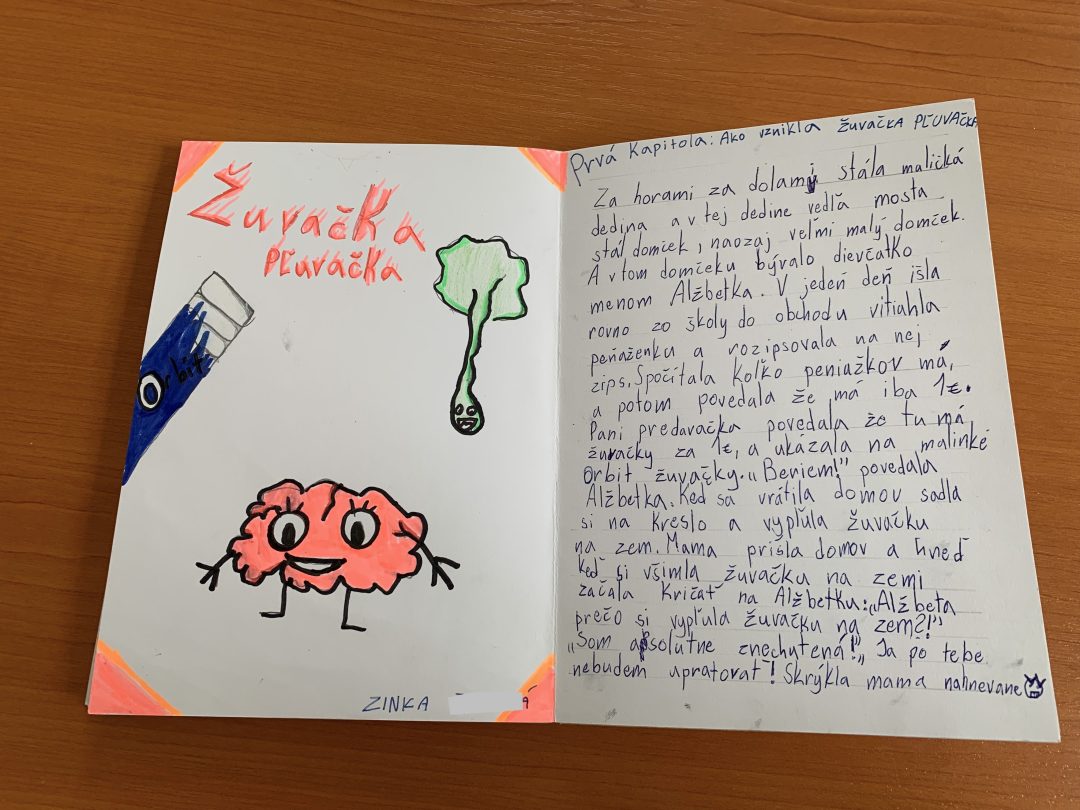 Žuvačka
Pľuvačka
Orbit
ZINKA
Prvá Kapitola: Ako vznikla Žuvačka Pľuvačka
Za horami za dolamy stála maličká
dedina a v tej dedine vedľa mosta
stál domček, naozaj veľmi malý domček.
A v tom domčeku bývalo dievčatko
menom Alžbetka. V jedeň deň išla
rovno zo školy do obchodu vitiahla
peňaženku a rozipsovala na nej
zips. Spočítala koľko peniažkov má,
a potom povedala že má iba 1€.
Pani predavačka povedala že tu má
žuvačky za 1€, a ukázala na malinké
Orbit žuvačky. „Beriem!" povedala
Alžbetka. Keď sa vrátila domov sadla
si na kreslo a vypľula žuvačku
na zem. Mama prišla domov a hneď
keď si všimla žuvačku na zemi
začala kričať na Alžbetku: „Alžbeta
prečo si vypľula žuvačku na zem?!"
„Som absolutne znechutená!" „Ja po tebe
nebudem upratovať! Skrýkla mama nahnevane